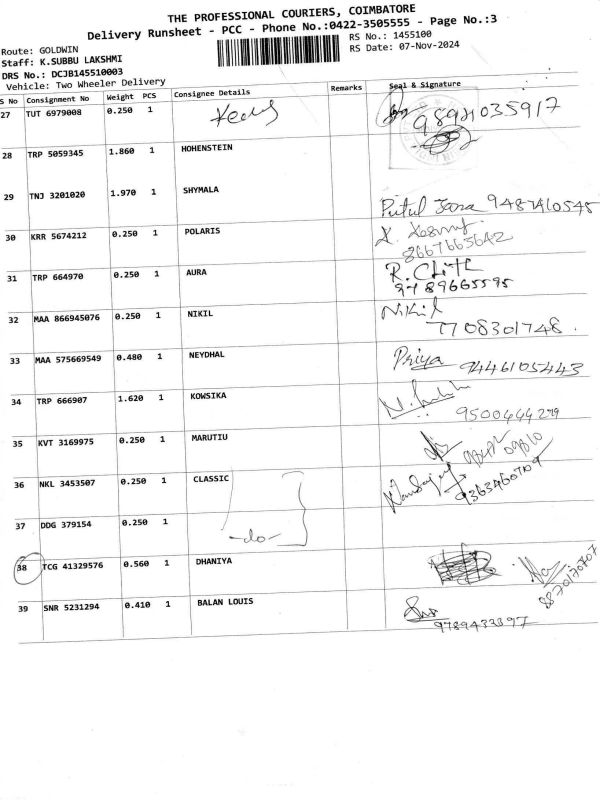 THE PROFESSIONAL COURIERS, COIMBATORE
Delivery Runsheet - PCC - Phone No.:0422-3505555 - Page No.:3
Route: GOLDWIN
RS No.: 1455100
Staff: K.SUBBU LAKSHMI
RS Date: 07-Nov-2024
DRS No.: DCJB145510003
Vehicle: Two Wheeler Delivery
S No Consignment No Weight PCS Consignee Details Remarks Seal & Signature
27 TUT 6979008 0.250 1
28 TRP 5059345 1.860 1 HOHENSTEIN
29 TNJ 3201020 1.970 1 SHYMALA 9487410545
30 KRR 5674212 0.250 1 POLARIS 8667665642
31 TRP 664970 0.250 1 AURA 9489665595
32 MAA 866945076 0.250 1 NIKIL Nikil 7708301748.
33 MAA 575669549 0.480 1 NEYDHAL Priya 9446105443
34 TRP 666907 1.620 1 KOWSIKA 9500444279
35 KVT 3169975 0.250 1 MARUTIU
36 NKL 3453507 0.250 1 CLASSIC 9363460709
37 DDG 379154 0.250 1 -do-
38 TCG 41329576 0.560 1 DHANIYA 8870170707
39 SNR 5231294 0.410 1 BALAN LOUIS 9789433397